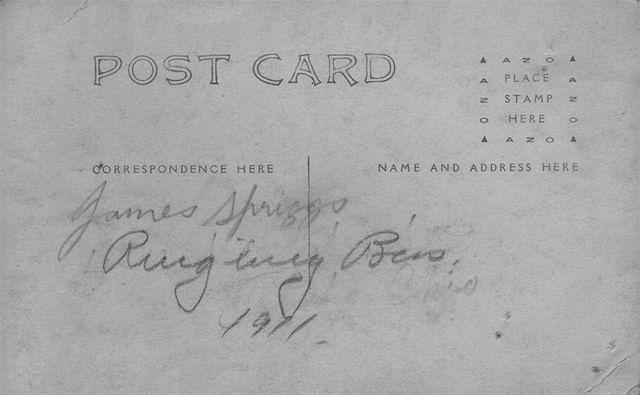 POST CARD
▲ AZO ▲
A PLACE A
Z STAMP Z
O HERE O
▲ AZO ▲
CORRESPONDENCE HERE
NAME AND ADDRESS HERE
James Spriggs
Ringling Bros.
Ohio
1911.